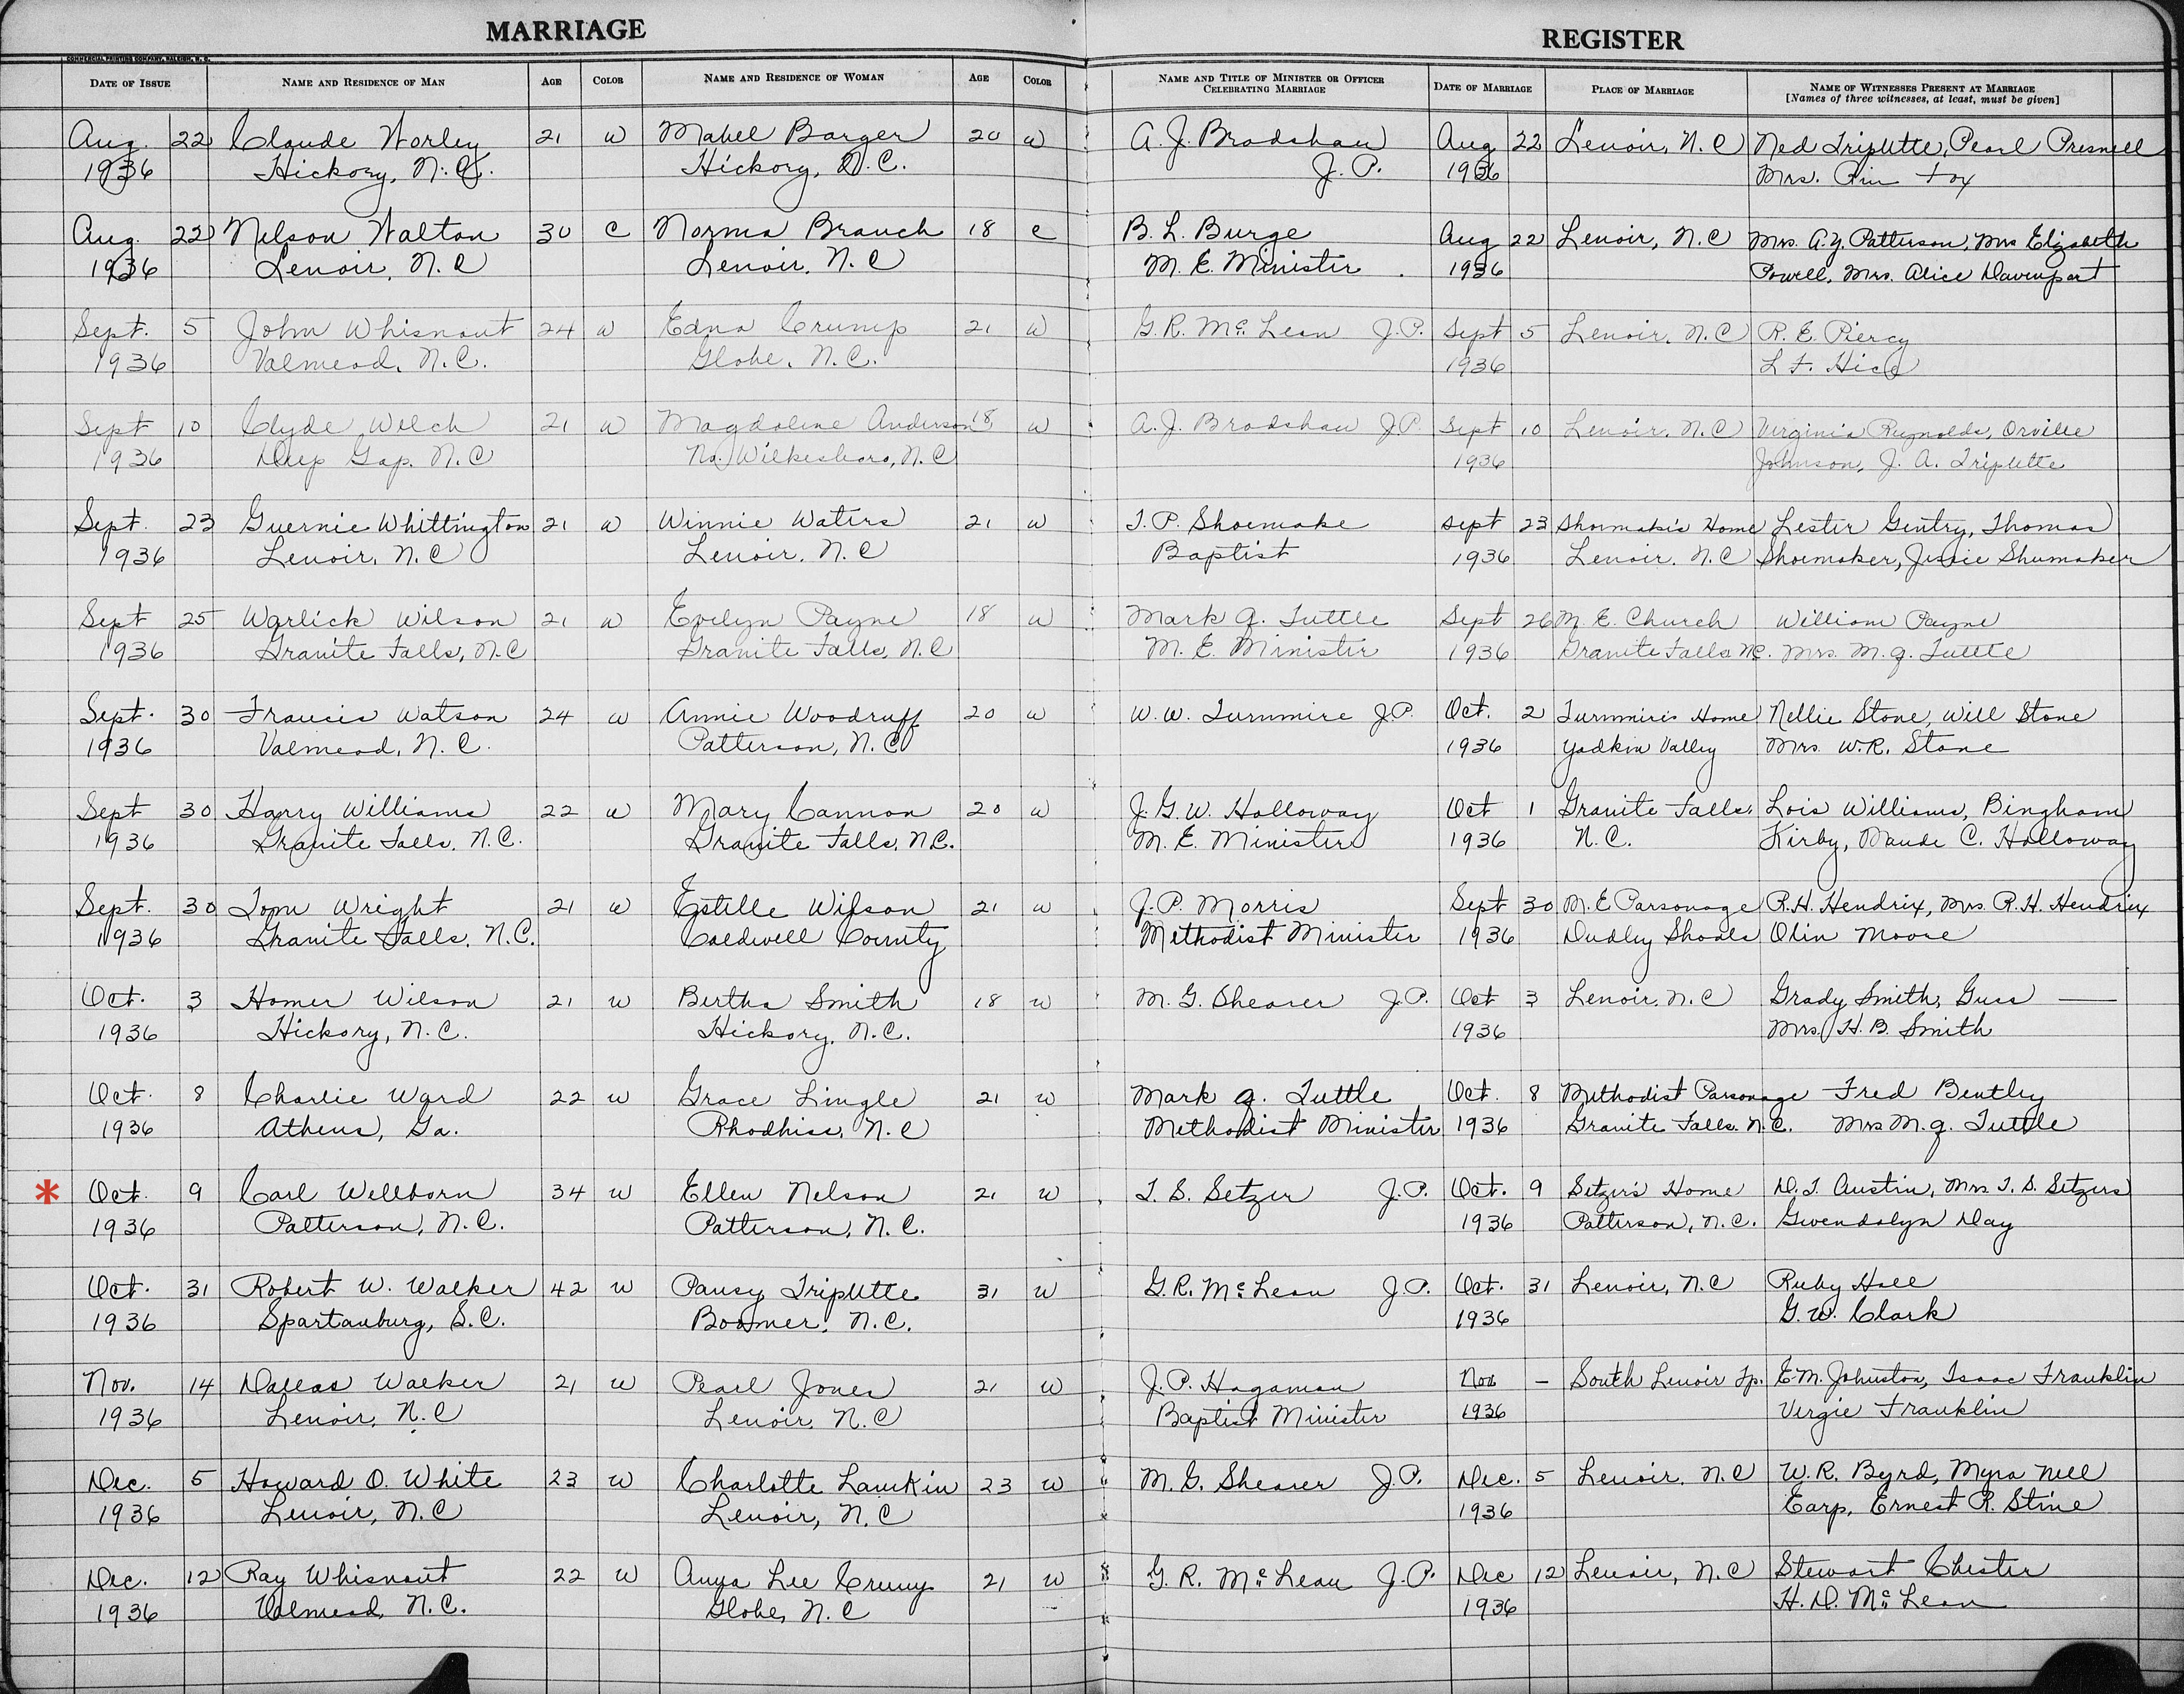 MARRIAGE REGISTER
COMMERCIAL PRINTING COMPANY, RALEIGH, N. C.
DATE OF ISSUE NAME AND RESIDENCE OF MAN AGE COLOR NAME AND RESIDENCE OF WOMAN AGE COLOR NAME AND TITLE OF MINISTER OR OFFICER CELEBRATING MARRIAGE DATE OF MARRIAGE PLACE OF MARRIAGE NAME OF WITNESSES PRESENT AT MARRIAGE
[Names of three witnesses, at least, must be given]
Aug. 22 Claude Worley 21 W Mabel Barger 20 W A. J. Bradshaw Aug 22 Lenoir, N.C Ned Triplette, Pearl Presnell
1936 Hickory, N.C. Hickory, N.C. J.P. 1936 Mrs. Fox
Aug. 22 Nelson Walton 30 C Norma Branch 18 C B. L. Burge Aug 22 Lenoir, N.C Mrs. A.Y. Patterson, Mrs Elizabeth
1936 Lenoir, N.C Lenoir, N.C M. E. Minister 1936 Powell, Mrs. Alice Davenport
Sept. 5 John Whisnant 24 W Edna Crump 21 W G. R. McLean J.P. Sept 5 Lenoir, N.C R. E. Piercy
1936 Valmead, N.C. Globe, N.C. 1936 L F. Hice
Sept 10 Clyde Welch 21 W Magdaline Anderson 18 W A. J. Bradshaw J.P. Sept 10 Lenoir, N.C Virginia Reynolds, Orville
1936 Deep Gap, N.C No. Wilkesboro, N.C 1936 Johnson, J. A. Triplette
Sept. 23 Guernie Whittington 21 W Winnie Waters 21 W T. P. Shoemake Sept 23 Shoemake's Home Lester Gentry, Thomas
1936 Lenoir, N.C Lenoir, N.C Baptist 1936 Lenoir, N.C Shoemaker, Jessie Shumaker
Sept 25 Warlick Wilson 21 W Evelyn Payne 18 W Mark Q. Tuttle Sept 26 M. E. Church William Payne
1936 Granite Falls, N.C Granite Falls, N.C M. E. Minister 1936 Granite Falls NC. Mrs. M. Q. Tuttle
Sept. 30 Francis Watson 24 W Annie Woodruff 20 W W. W. Turnmire J.P. Oct. 2 Turnmire's Home Nellie Stone, Will Stone
1936 Valmead, N.C. Patterson, N.C 1936 Yadkin Valley Mrs. W.R. Stone
Sept 30 Harry Williams 22 W Mary Cannon 20 W J. G. W. Holloway Oct 1 Granite Falls, Lois Williams, Bingham
1936 Granite Falls, N.C. Granite Falls, N.C. M. E. Minister 1936 N.C. Kirby, Maude C. Holloway
Sept. 30 Tom Wright 21 W Estelle Wilson 21 W J. P. Morris Sept 30 M.E Parsonage R.H. Hendrix, Mrs. R.H. Hendrix
1936 Granite Falls, N.C. Caldwell County Methodist Minister 1936 Dudley Shoals Olin Moose
Oct. 3 Homer Wilson 21 W Bertha Smith 18 W M. G. Shearer J.P. Oct 3 Lenoir, N.C Grady Smith, Guss —
1936 Hickory, N.C. Hickory, N.C. 1936 Mrs. H. B. Smith
Oct. 8 Charlie Ward 22 W Grace Lingle 21 W Mark Q. Tuttle Oct. 8 Methodist Parsonage Fred Bentley
1936 Athens, Ga. Rhodhiss, N.C Methodist Minister 1936 Granite Falls N.C. Mrs M. Q. Tuttle
* Oct. 9 Carl Wellborn 34 W Ellen Nelson 21 W T. S. Setzer J.P. Oct. 9 Setzer's Home D. T. Austin, Mrs T. S. Setzers
1936 Patterson, N.C. Patterson, N.C. 1936 Patterson, N.C. Gwendolyn Day
Oct. 31 Robert W. Walker 42 W Pansy Triplette 31 W G. R. McLean J.P. Oct. 31 Lenoir, N.C Ruby Hall
1936 Spartanburg, S.C. Boomer, N.C. 1936 G. W. Clark
Nov. 14 Dallas Walker 21 W Pearl Jones 21 W J. P. Hagaman Nov — South Lenoir Tp. E.M. Johnston, Isaac Franklin
1936 Lenoir, N.C Lenoir, N.C Baptist Minister 1936 Virgie Franklin
Dec. 5 Howard O. White 23 W Charlotte Lamkin 23 W M. G. Shearer J.P. Dec. 5 Lenoir, N.C W. R. Byrd, Myra Nell
1936 Lenoir, N.C Lenoir, N.C 1936 Earp, Ernest R. Stine
Dec. 12 Ray Whisnant 22 W Lee Crump 21 W G. R. McLean J.P. Dec 12 Lenoir, N.C Stewart Chester
1936 Valmead, N.C. Globe, N.C 1936 H. D. McLean